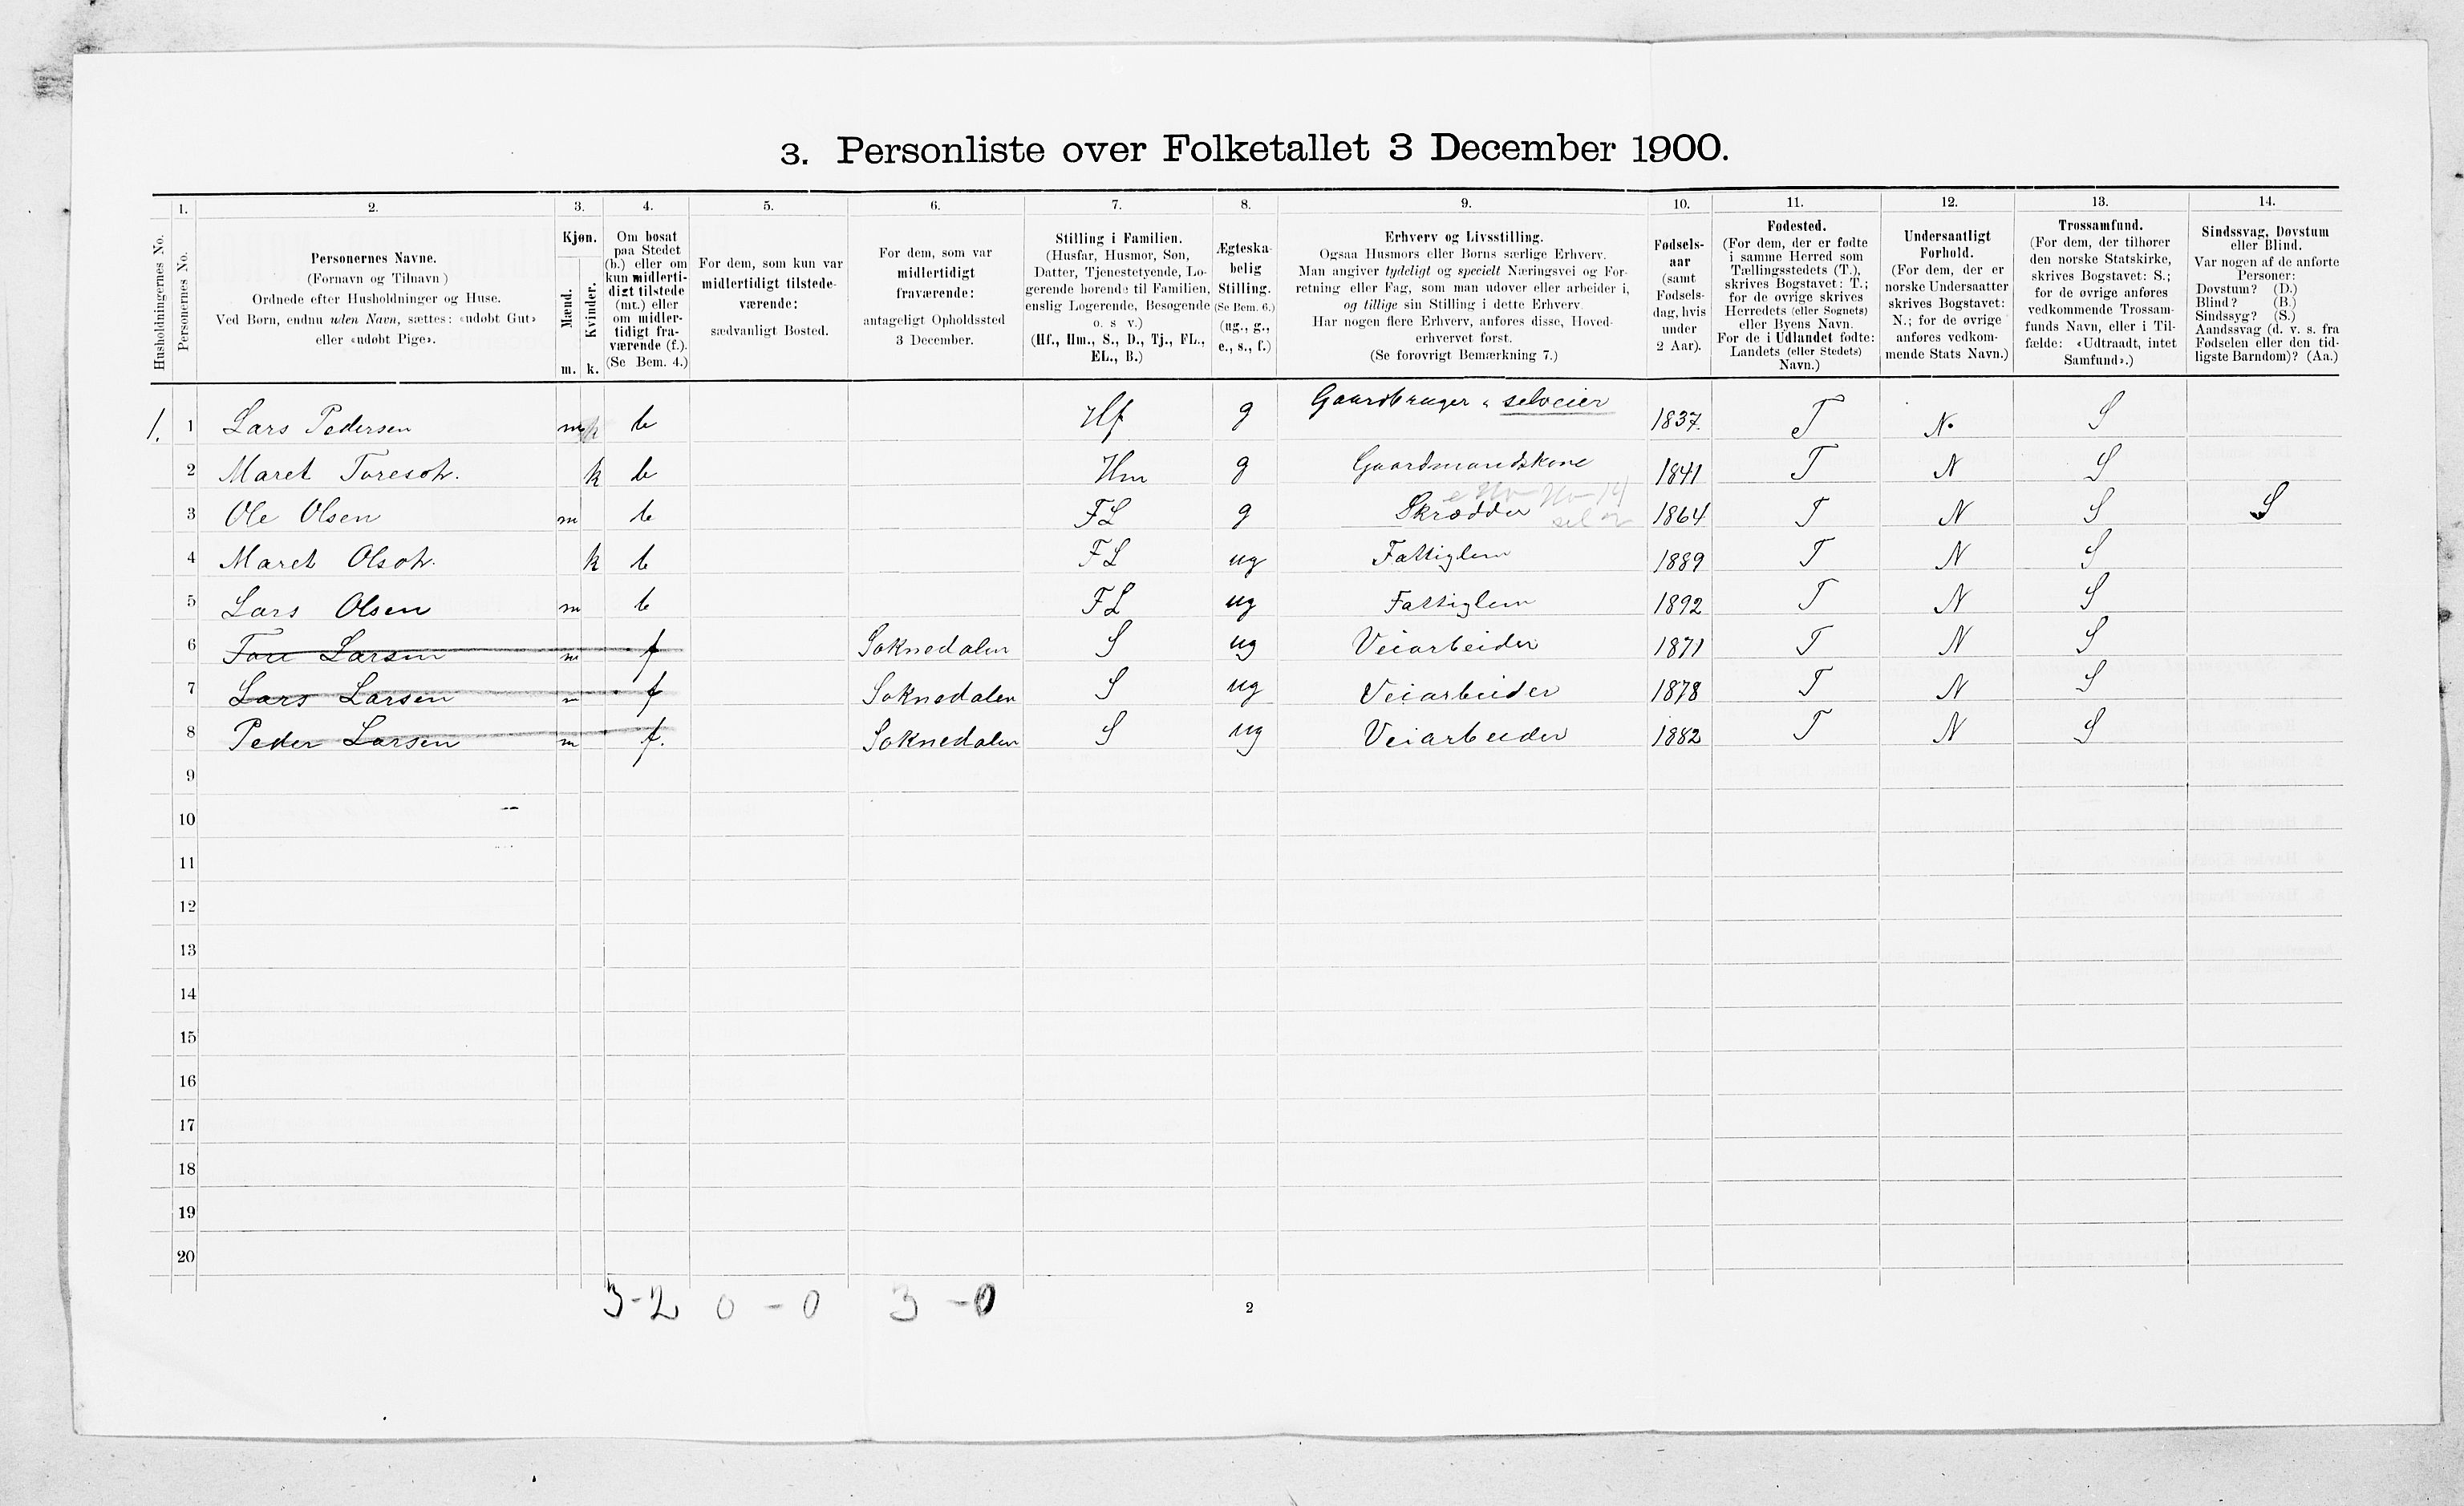 3. Personliste over Folketallet 3 December 1900.
1. 2. 3. 4. 5. 6. 7. 8. 9. 10. 11. 12. 13. 14.
Husholdningernes No.
Personernes No.
Personernes Navne.
(Fornavn og Tilnavn)
Ordnede efter Husholdninger og Huse.
Ved Børn, endnu uden Navn, sættes: «udøbt Gut»
eller «udøbt Pige».
Kjøn.
Mænd.
Kvinder.
m. k.
Om bosat
paa Stedet
(b.) eller om
kun midlerti-
digt tilstede
(mt.) eller
om midler-
tidigt fra-
værende (f.).
(Se Bem. 4.)
For dem, som kun var
midlertidigt tilstede-
værende:
sædvanligt Bosted.
For dem, som var
midlertidigt
fraværende:
antageligt Opholdssted
3 December.
Stilling i Familien.
(Husfar, Husmor, Søn,
Datter, Tjenestetyende, Lo-
gerende hørende til Familien,
enslig Logerende, Besøgende
o. s v.)
(Hf., Hm., S., D., Tj., FL.,
EL., B.)
Ægteska-
belig
Stilling.
(Se Bem. 6.)
(ug., g.,
e., s., f.)
Erhverv og Livsstilling.
Ogsaa Husmors eller Børns særlige Erhverv.
Man angiver tydeligt og specielt Næringsvei og For-
retning eller Fag, som man udøver eller arbeider i,
og tillige sin Stilling i dette Erhverv.
Har nogen flere Erhverv, anføres disse, Hoved-
erhvervet først.
(Se forøvrigt Bemærkning 7.)
Fødsels-
aar
(samt
Fødsels-
dag, hvis
under
2 Aar).
Fødested.
(For dem, der er fødte
i samme Herred som
Tællingsstedets (T.),
skrives Bogstavet: T.;
for de øvrige skrives
Herredets (eller Sognets)
eller Byens Navn.
For de i Udlandet fødte:
Landets (eller Stedets)
Navn.)
Undersaatligt
Forhold.
(For dem, der er
norske Undersaatter
skrives Bogstavet:
N.; for de øvrige
anføres vedkom-
mende Stats Navn.)
Trossamfund.
(For dem, der tilhører
den norske Statskirke,
skrives Bogstavet: S.;
for de øvrige anføres
vedkommende Trossam-
funds Navn, eller i Til-
fælde: «Udtraadt, intet
Samfund».)
Sindssvag, Døvstum
eller Blind.
Var nogen af de anførte
Personer:
Døvstum? (D.)
Blind? (B.)
Sindssyg? (S.)
Aandssvag (d. v. s. fra
Fødselen eller den tid-
ligste Barndom)? (Aa.)
1. 1 Lars Pedersen m b Hf g Gaardbruger selveier 1837. T N. S
2 Maret Toresdt. k b Hm g Gaardmandskone 1841 T N S
3 Ole Olsen m b FL g Skrædder 1864 T N S S
4 Maret Olsdt. k b FL ug Fattiglem 1889 T N S
5 Lars Olsen m b FL ug Fattiglem 1892 T N S
6 Tore Larsen m f Soknedalen S ug Veiarbeider 1871 T N S
7 Lars Larsen m f Soknedalen S ug Veiarbeider 1878 T N S
8 Peder Larsen m f. Soknedalen S ug Veiarbeider 1882 T N S
9
10
11
12
13
14
15
16
17
18
19
20
3-2 0-0 3-0
2